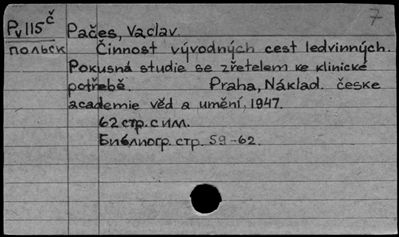 7
Pv115č Pačes, Vaclav.
ПОЛЬСК Činnost vývodných cest ledvinných.
Pokusná studie se zřetelem ke klinické
potřebě. Praha, Náklad. česke
academie věd a umění, 1947.
62 стр. с илл.
Библиогр. стр. 59-62.